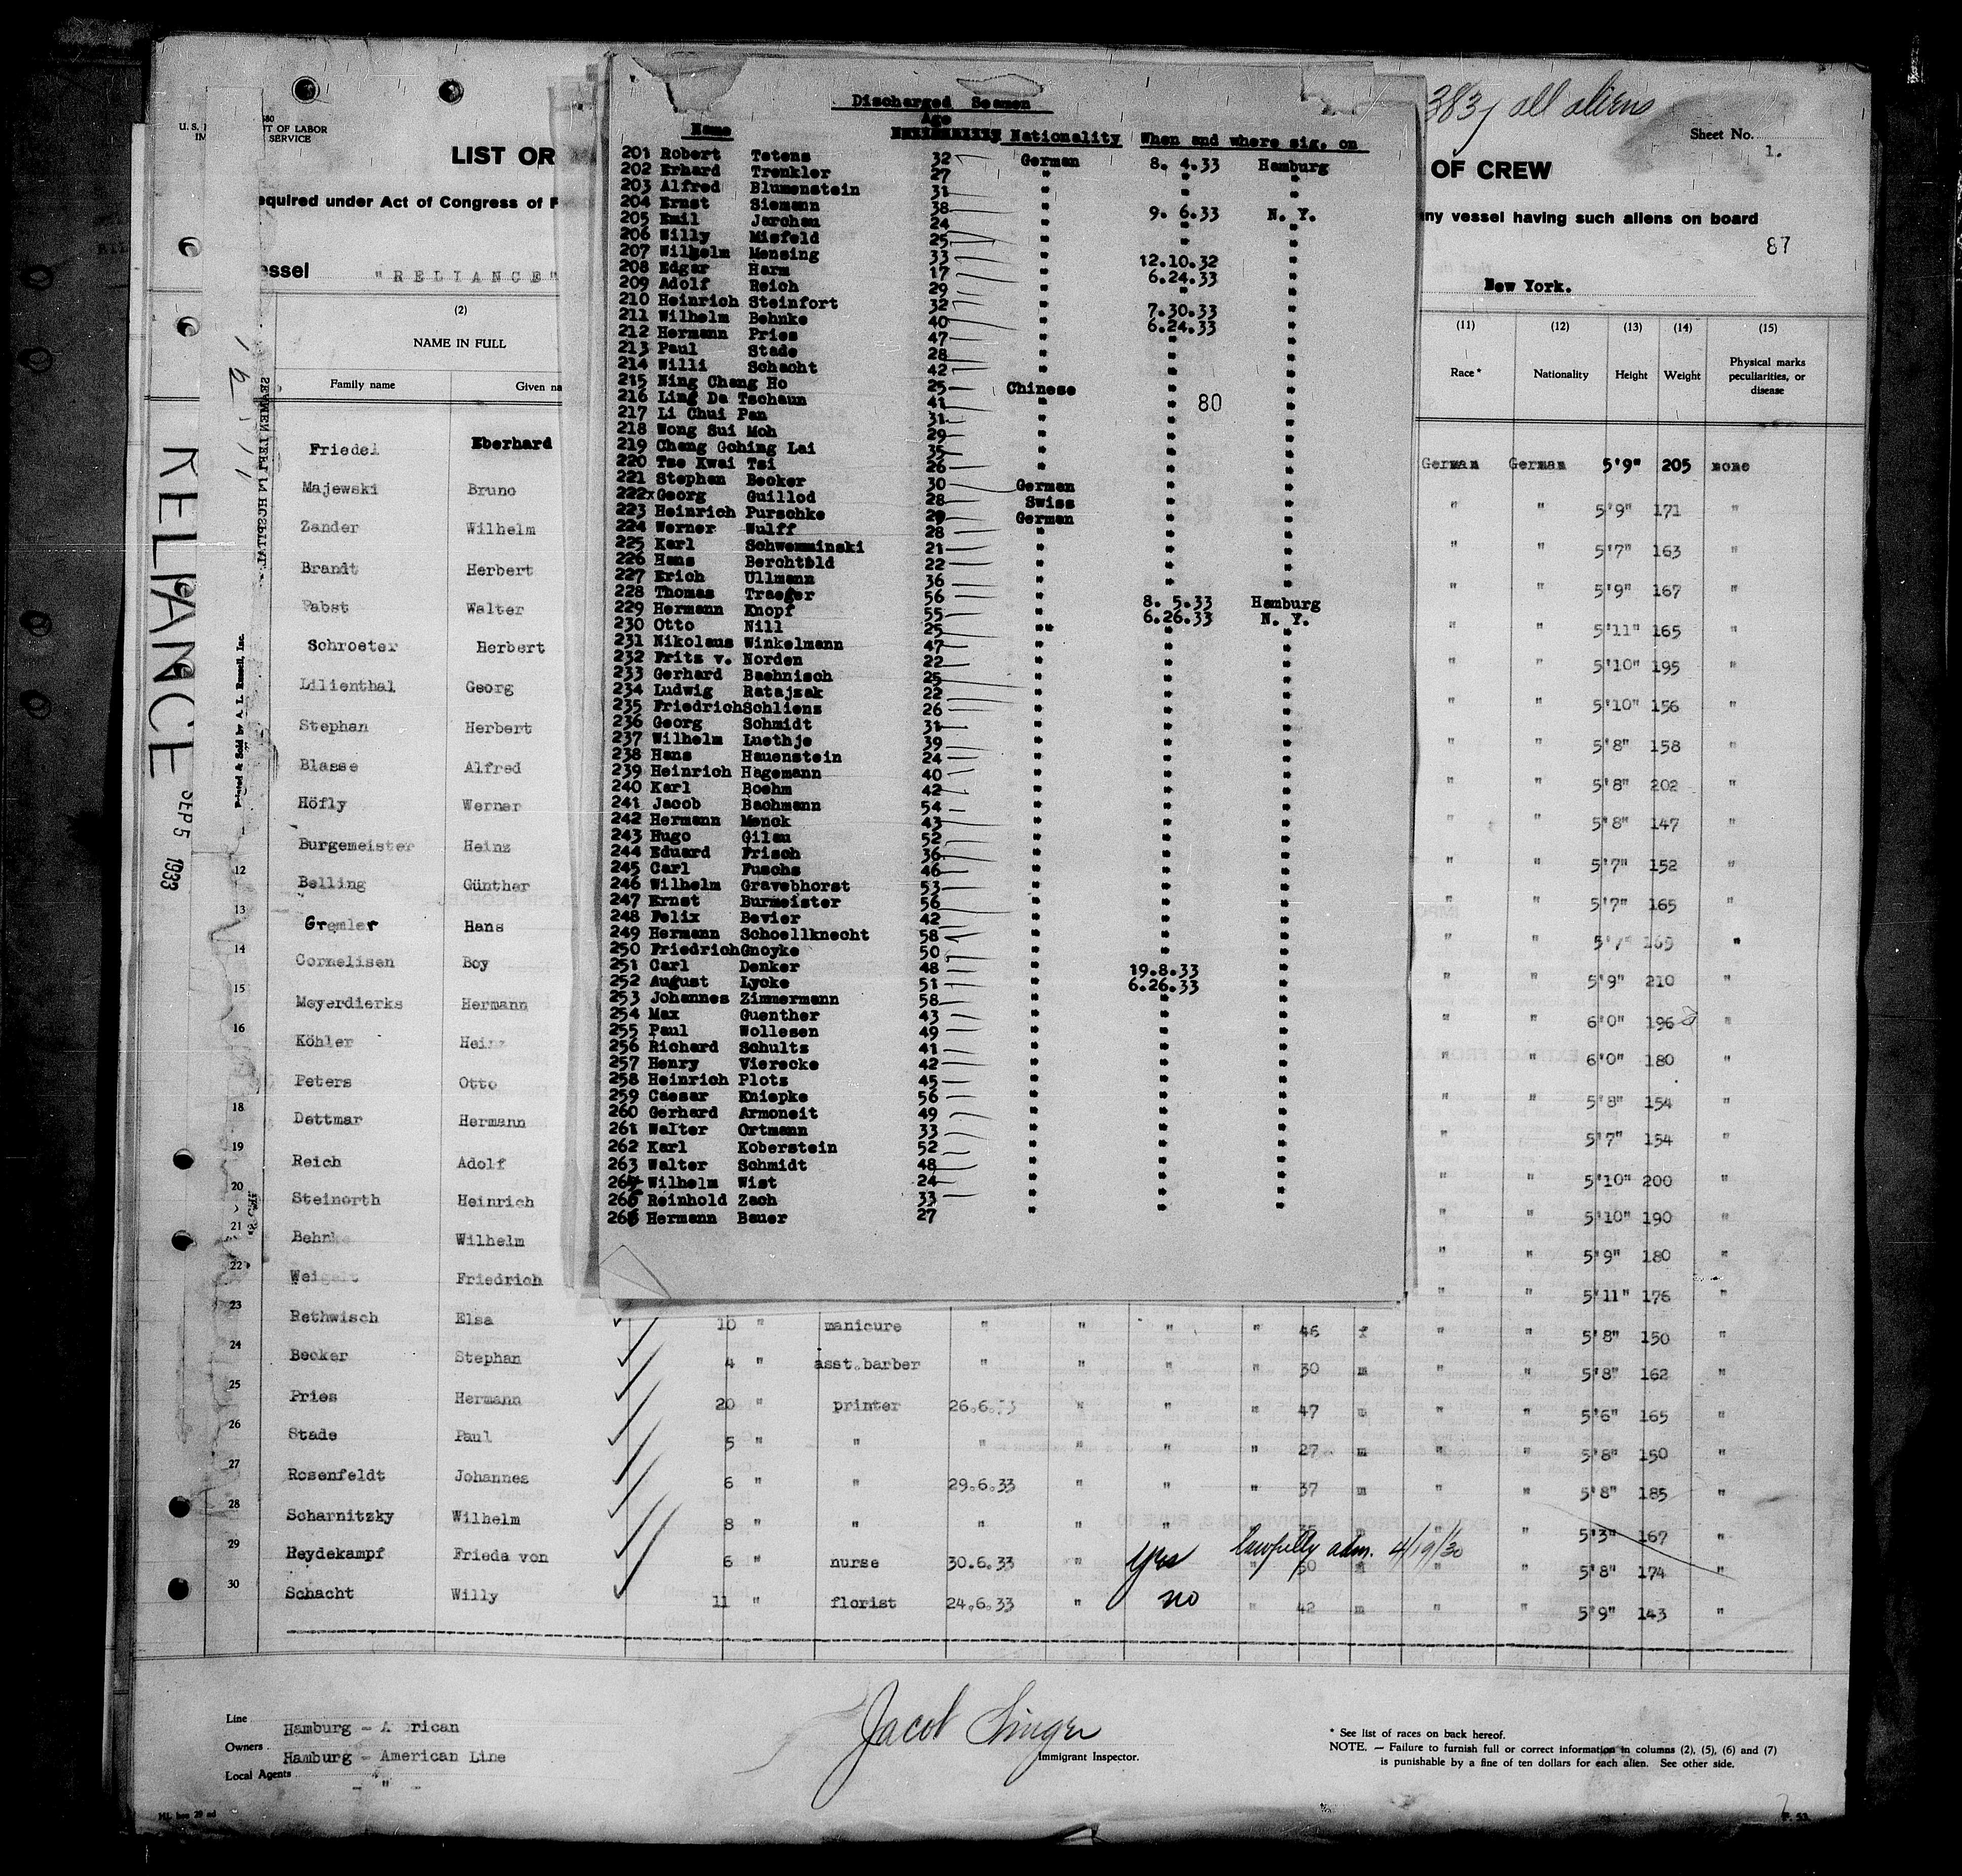 383 all aliens
Sheet No.
1.
U. S.
T OF LABOR
SERVICE
LIST OR
OF CREW
equired under Act of Congress of F
ny vessel having such aliens on board
87
essel "RELIANCE"
New York.
(2)
NAME IN FULL
Family name
Given na
(11) (12) (13) (14) (15)
Race* Nationality Height Weight Physical marks
peculiarities, or
disease
RELIANCE SEP 5 1933
Printed & Sold by A. I. Russell, Inc.
Discharged Seamen
Name Age Nationality When and where sig. on
201 Robert Tetens 32 German 8. 4.33 Hamburg
202 Erhard Trenkler 27 " " "
203 Alfred Blumenstein 31 " " "
204 Ernst Siemann 38 " 9. 6.33 N. Y.
205 Emil Jarchan 24 " " "
206 Willy Misfeld 25 " " "
207 Wilhelm Mensing 33 " 12.10.32 "
208 Edgar Harm 17 " 6.24.33 "
209 Adolf Reich 29 " " "
210 Heinrich Steinfort 32 " 7.30.33 "
211 Wilhelm Behnke 40 " 6.24.33 "
212 Hermann Pries 47 " " "
213 Paul Stade 28 " " "
214 Willi Schacht 42 " " "
215 Ning Chang Ho 25 Chinese " "
216 Ling Da Tschaun 41 " " 80 "
217 Li Chui Pan 31 " " "
218 Wong Sui Moh 29 " " "
219 Chang Gching Lai 35 " " "
220 Tse Kwai Tsi 26 " " "
221 Stephan Becker 30 German " "
222x Georg Guillod 28 Swiss " "
223 Heinrich Purschke 29 German " "
224 Werner Wulff 28 " " "
225 Karl Schwemminski 21 " " "
226 Hans Berchtold 22 " " "
227 Erich Ullmann 36 " " "
228 Thomas Traeger 56 " 8. 5.33 Hamburg
229 Hermann Knopf 55 " 6.26.33 N. Y.
230 Otto Nill 25 " " "
231 Nikolaus Winkelmann 47 " " "
232 Fritz v. Norden 22 " " "
233 Gerhard Baehnisch 25 " " "
234 Ludwig Ratajzak 22 " " "
235 Friedrich Schliens 26 " " "
236 Georg Schmidt 31 " " "
237 Wilhelm Luethje 39 " " "
238 Hans Hauenstein 24 " " "
239 Heinrich Hagemann 40 " " "
240 Karl Boehm 42 " " "
241 Jacob Bachmann 54 " " "
242 Hermann Menck 43 " " "
243 Hugo Gilau 52 " " "
244 Eduard Frisch 36 " " "
245 Carl Fuschs 46 " " "
246 Wilhelm Gravebhorst 53 " " "
247 Ernst Burmeister 56 " " "
248 Felix Bevier 42 " " "
249 Hermann Schoellknecht 58 " " "
250 Friedrich Gnoyke 50 " " "
251 Carl Denker 48 " 19.8.33 "
252 August Lycke 51 " 6.26.33 "
253 Johannes Zimmermann 58 " " "
254 Max Guenther 43 " " "
255 Paul Wollesen 49 " " "
256 Richard Schultz 41 " " "
257 Henry Vierecke 42 " " "
258 Heinrich Plots 45 " " "
259 Caesar Kniepke 56 " " "
260 Gerhard Armoneit 49 " " "
261 Walter Ortmann 33 " " "
262 Karl Koberstein 52 " " "
263 Walter Schmidt 48 " " "
264 Wilhelm Wist 24 " " "
265 Reinhold Zach 33 " " "
266 Hermann Bauer 27 " " "
Friedel Eberhard German German 5'9" 205 none
Majewski Bruno " " 5'9" 171 "
Zander Wilhelm " " 5'7" 163 "
Brandt Herbert " " 5'9" 167 "
Pabst Walter " " 5'11" 165 "
Schroeter Herbert " " 5'10" 195 "
Lilienthal Georg " " 5'10" 156 "
Stephan Herbert " " 5'8" 158 "
Blasse Alfred " " 5'8" 202 "
Höfly Werner " " 5'8" 147 "
Burgemeister Heinz " " 5'7" 152 "
12 Belling Günther " " 5'7" 165 "
13 Gremler Hans " " 5'7" 165 "
14 Cornelisen Boy " " 5'9" 210 "
15 Meyerdierks Hermann " " 6'0" 196 "
16 Köhler Heinz " " 6'0" 180 "
Peters Otto " " 5'8" 154 "
18 Dettmar Hermann " " 5'7" 154 "
19 Reich Adolf " " 5'10" 200 "
20 Steinorth Heinrich " " 5'10" 190 "
21 Behnke Wilhelm " " 5'9" 180 "
22 Weigelt Friedrich " " 5'11" 176 "
23 Rethwisch Elsa 10 " manicure " " " " 46 f " " 5'8" 150 "
24 Becker Stephan 4 " asst.barber " " " " 30 m " " 5'8" 162 "
25 Pries Hermann 20 " printer 26.6.33 " " " 47 m " " 5'6" 165 "
26 Stade Paul 5 " " " " " " 27 m " " 5'8" 150 "
27 Rosenfeldt Johannes 6 " " 29.6.33 " " " 37 m " " 5'8" 185 "
28 Scharnitzky Wilhelm 8 " " " " " " " " 5'3" 167 "
29 Heydekampf Frieda von 6 " nurse 30.6.33 " yes lawfully adm. 4/19/30 50 " " 5'8" 174 "
30 Schacht Willy 11 " florist 24.6.33 " no " 42 m " " 5'9" 143 "
Line Hamburg - A rican
Owners Hamburg - American Line
Local Agents - " -
Jacob Singer
Immigrant Inspector.
* See list of races on back hereof.
NOTE. — Failure to furnish full or correct information in columns (2), (5), (6) and (7)
is punishable by a fine of ten dollars for each alien. See other side.